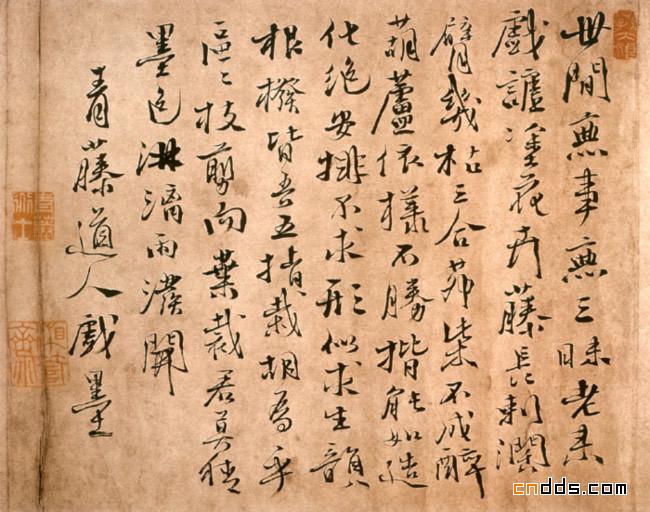 世間無事無三昧老来
戲謔塗花卉藤長刺濶
臂幾枯三合茆柴不成醉
葫蘆依樣不勝揩能如造
化絶安排不求形似求生韻
根撥皆吾五指栽胡為乎
區〻枝剪而葉裁君莫猜
墨色淋漓雨潑開
青藤道人戲墨
cndds.com